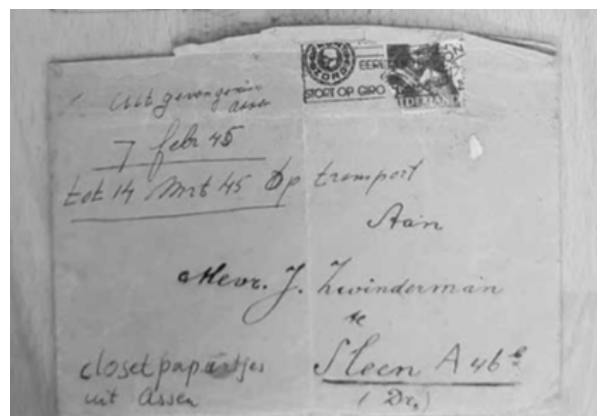 ZORG
EERE
STORT OP GIRO
DERLAND
Uit gevangenis
Assen
7 febr 45
tot 14 Mrt 45 op transport
Aan
Mevr. J. Zwinderman
te
Sleen A 46 b
(Dr.)
closet papiertjes
uit Assen